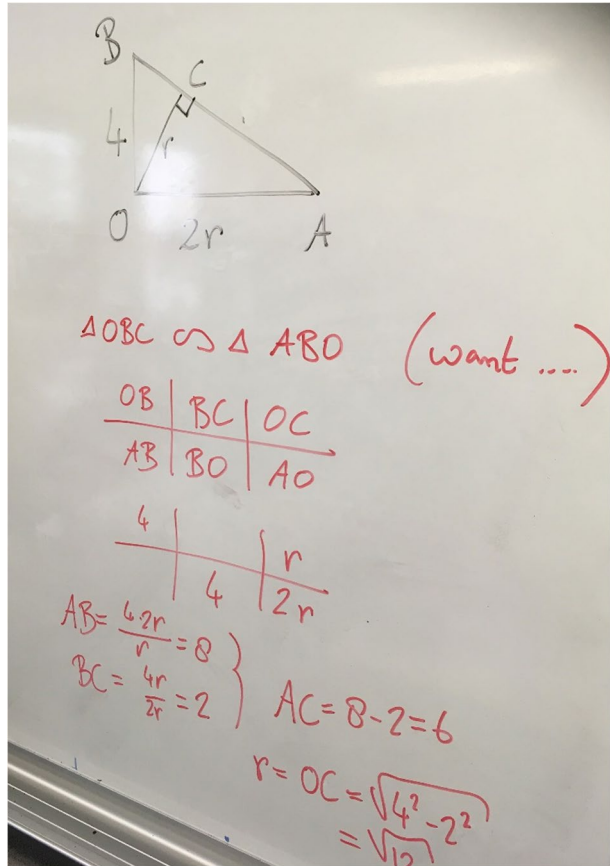 B
C
4
r
O
2r
A
△OBC ∽ △ ABO (want ....)
OB | BC | OC
AB | BO | AO
4 | | r
| 4 | 2r
AB= 4.2r/r =8
BC= 4r/2r =2
AC=8-2=6
r= OC =√4²-2²
=√12